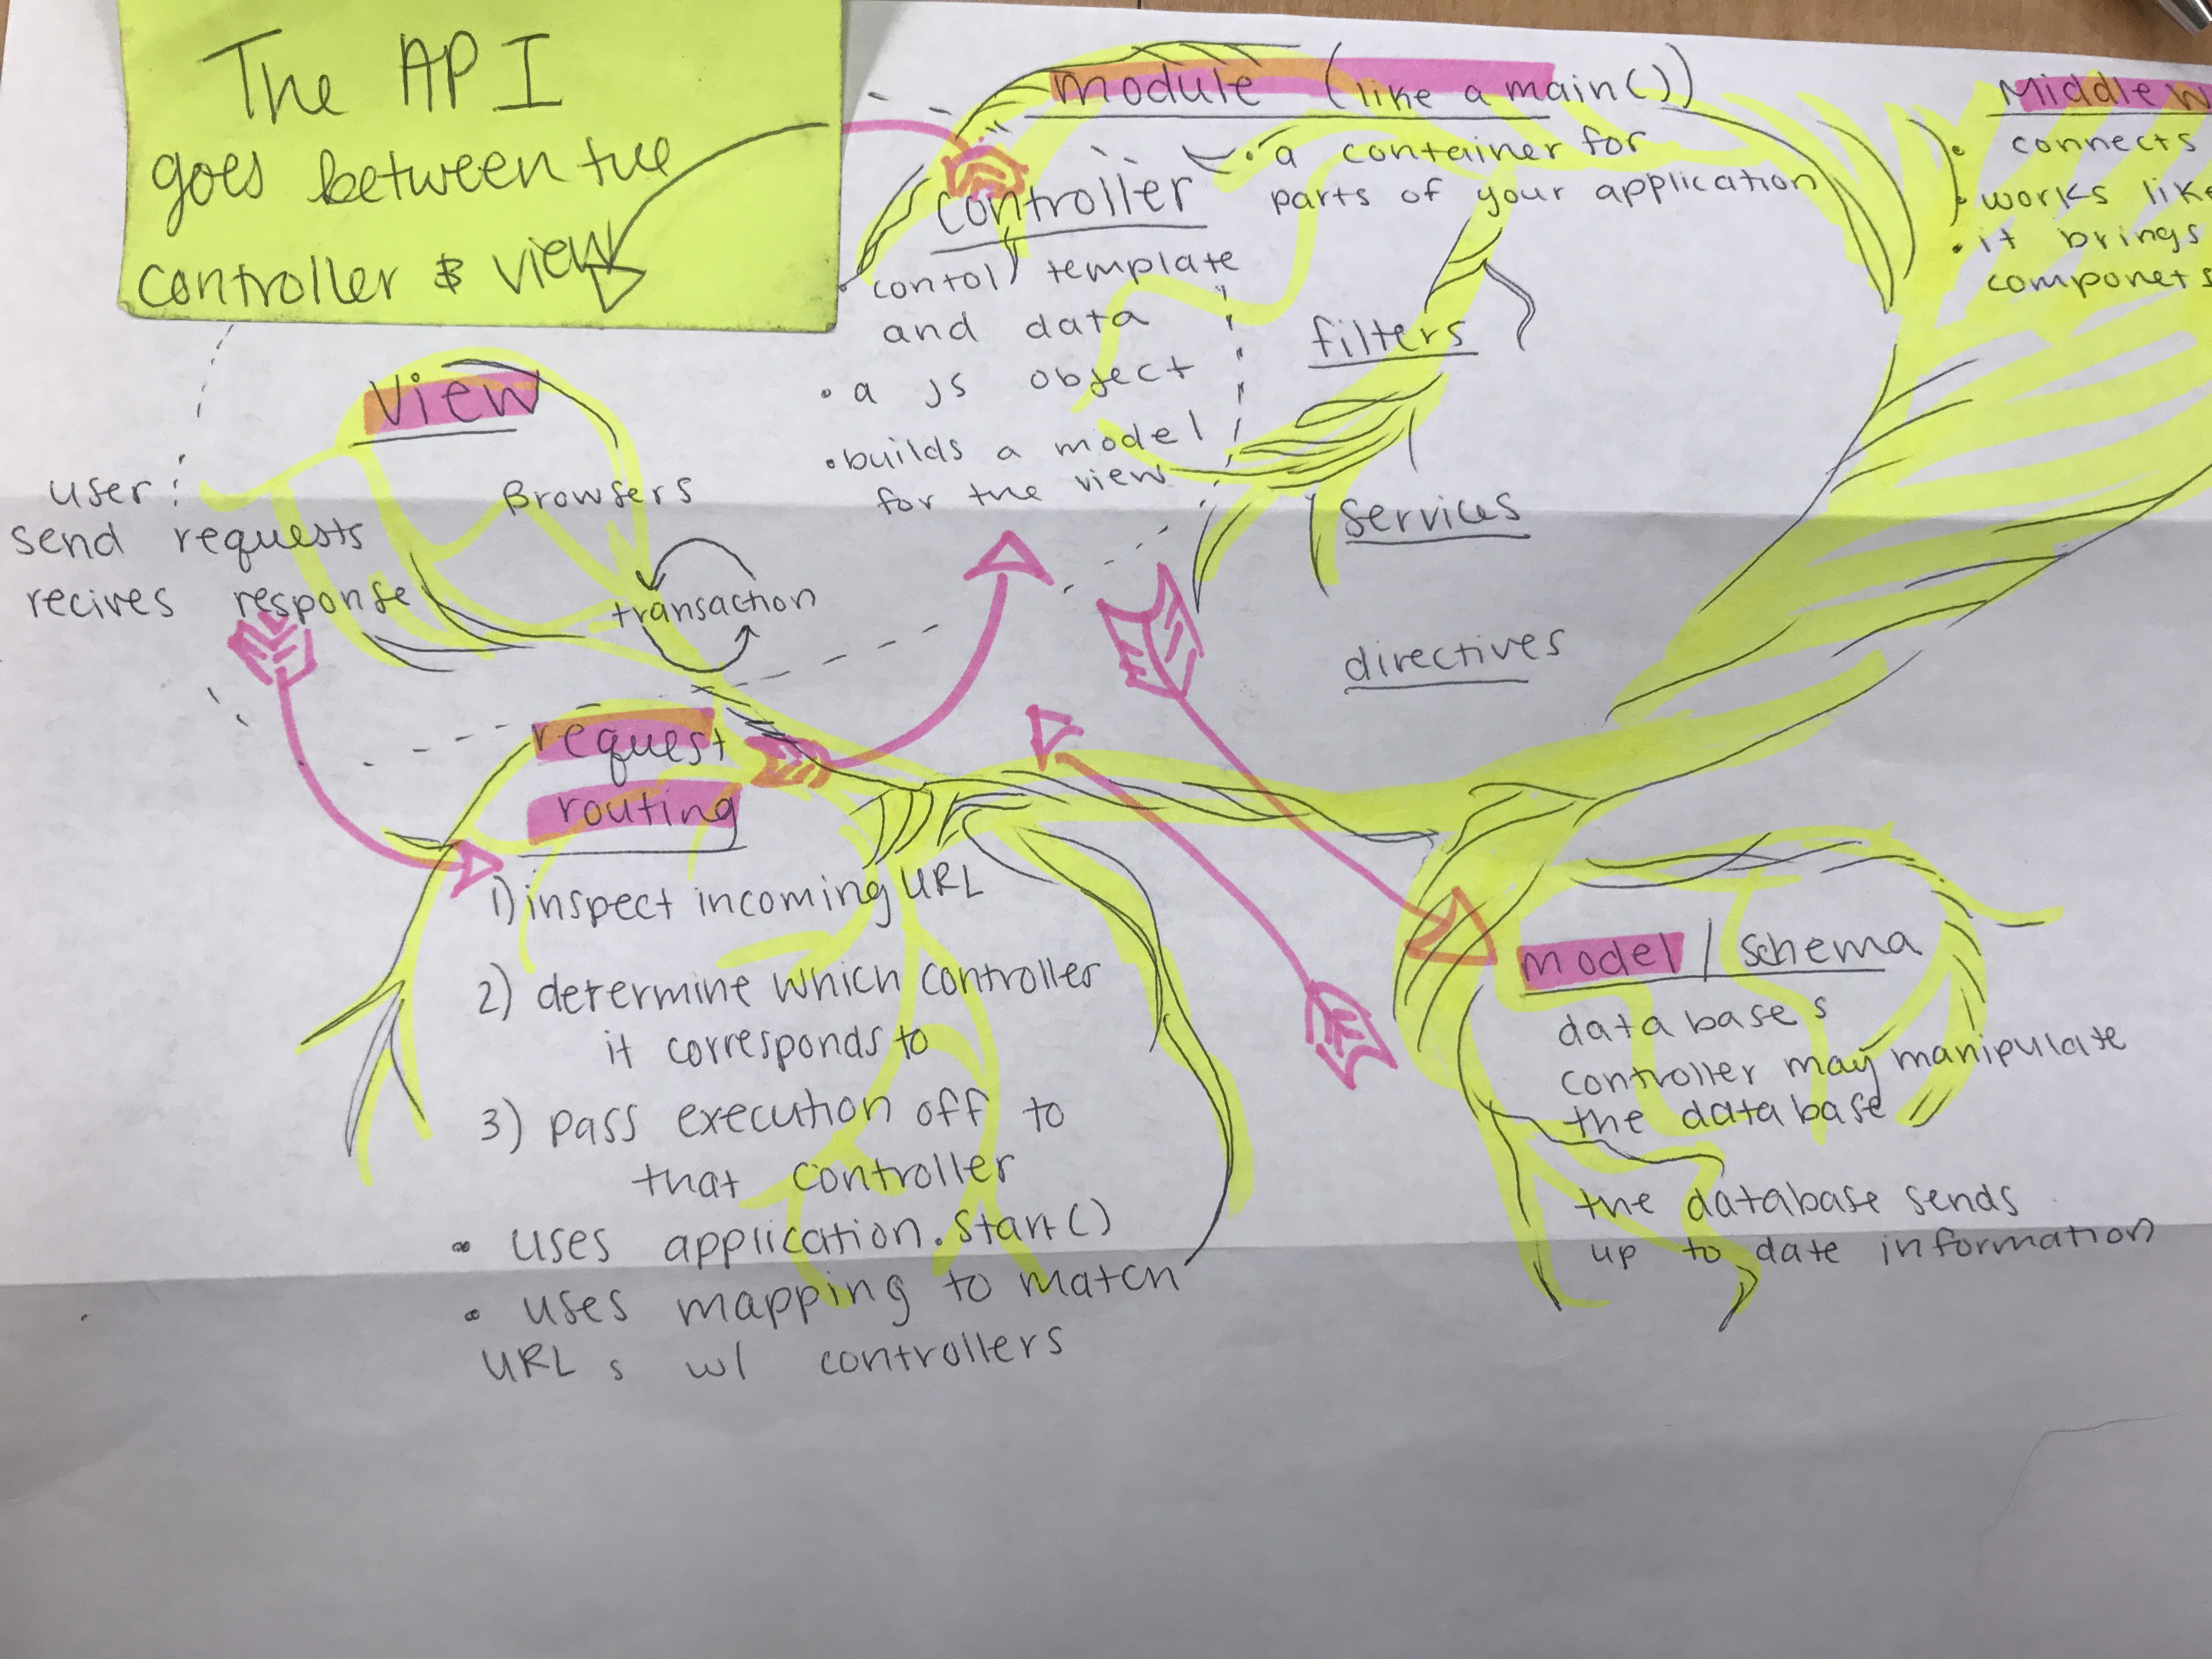 The API
goes between the
controller & view
View
Browsers
user:
send requests
recives response
transaction
request
routing
1) inspect incoming URL
2) determine which controller
it corresponds to
3) pass execution off to
that controller
• uses application.start()
• uses mapping to match
URLs w/ controllers
module (like a main())
• a container for
parts of your application
controller
control template
and data
• a js object
• builds a model
for the view
filters
services
directives
model/schema
databases
controller may manipulate
the database
the database sends
up to date information
Middlew
• connects
• works like
• it brings
componets